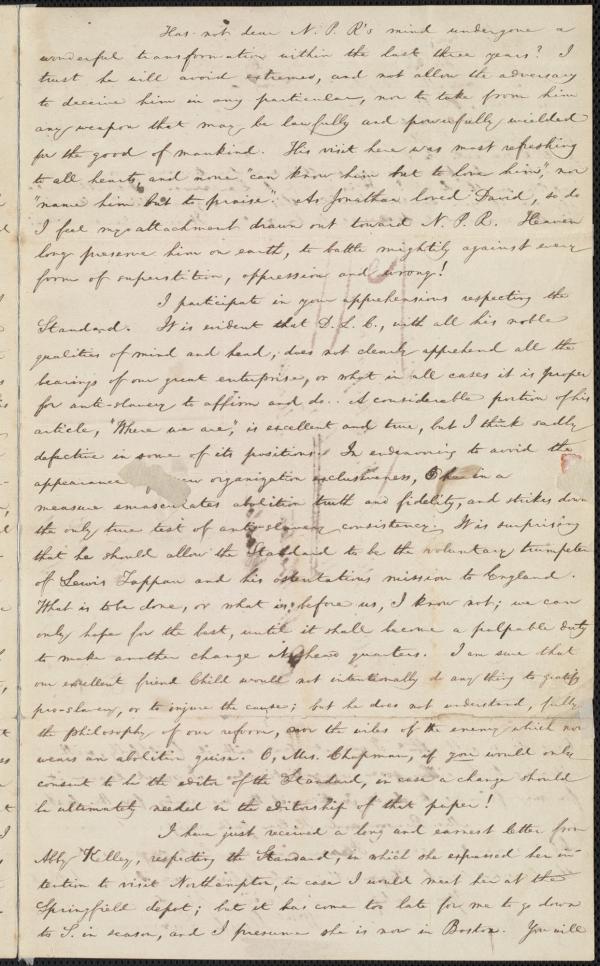 Has not dear N. P. R's mind undergone a
wonderful transformation within the last three years? I
trust he will avoid extremes, and not allow the adversary
to deceive him in any particular, nor to take from him
any weapon that may be lawfully and powerfully wielded
for the good of mankind. His visit here was most refreshing
to all hearts, and none "can know him but to love him," nor
"name him but to praise". As Jonathan loved David, so do
I feel my attachment drawn out toward N. P. R. Heaven
long preserve him on earth, to battle mightily against every
form of superstition, oppression and wrong!
I participate in your apprehensions respecting the
Standard. It is evident that D. L. C., with all his noble
qualities of mind and head, does not clearly apprehend all the
bearings of our great enterprise, or what in all cases it is proper
for anti-slavery to affirm and do. A considerable portion of his
article, "Where we are," is excellent and true, but I think sadly
defective in some of its positions. In endeavoring to avoid the
appearance new organization exclusiveness, he in a
measure emasculates abolition truth and fidelity, and strikes down
the only true test of anti-slavery consistency. It is surprising
that he should allow the Standard to be the voluntary trumpeter
of Lewis Tappan and his ostentatious mission to England.
What is to be done, or what is before us, I know not; we can
only hope for the best, until it shall become a palpable duty
to make another change at head quarters. I am sure that
our excellent friend Child would not intentionally do any thing to gratify
pro-slavery, or to injure the cause; but he does not understand, fully,
the philosophy of our reform, nor the wiles of the enemy which now
wears an abolition guise. O, Mrs. Chapman, if you would only
consent to be the editor of the Standard, in case a change should
be ultimately needed in the editorship of that paper!
I have just received a long and earnest letter from
Abby Kelley, respecting the Standard, in which she expressed her in-
tention to visit Northampton, in case I would meet her at the
Springfield depot; but it has come too late for me to go down
to S. in season, and I presume she is now in Boston. You will